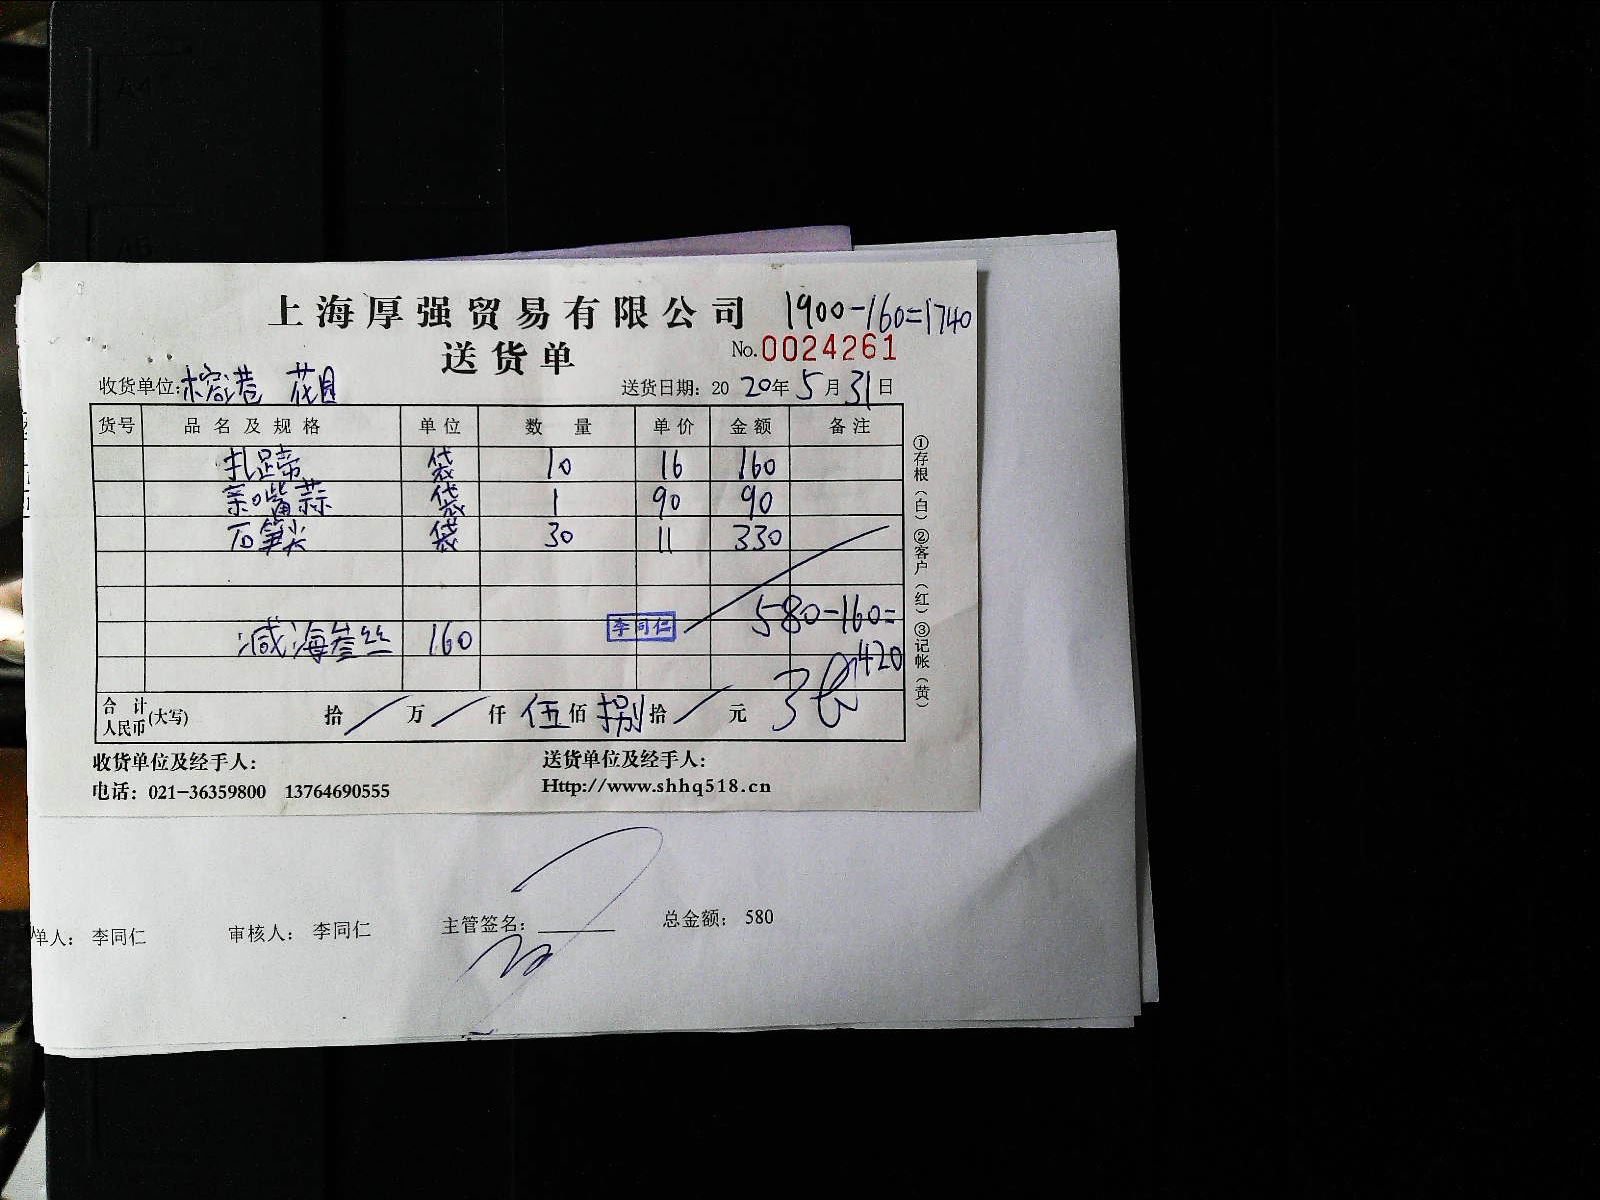 上海厚强贸易有限公司 1900-160=1740
送货单 No.0024261
收货单位: 榕港 花园 送货日期: 2020年5月31日
货号 品名及规格 单位 数量 单价 金额 备注
扎蹄 袋 10 16 160
亲嘴蒜 袋 1 90 90
石笋尖 袋 30 11 330
580-160=
减海参丝 160 李同仁
420
合计人民币(大写) 拾/万/仟伍佰捌拾/元
收货单位及经手人: 送货单位及经手人:
电话: 021-36359800 13764690555 Http://www.shhq518.cn
①存根(白)②客户(红)③记帐(黄)
单人: 李同仁 审核人: 李同仁 主管签名: 总金额: 580